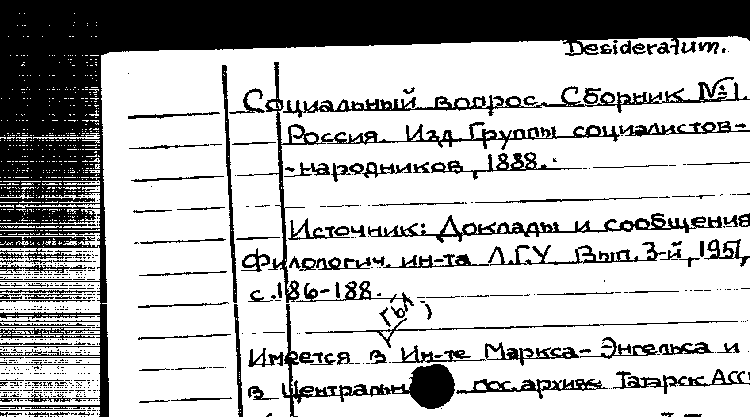 Desideratum.
Социальный вопрос. Сборник №1.
Россия. Изд. Группы социалистов-
-народников, 1888.
Источник: Доклады и сообщения
Филологич. ин-та Л.Г.У. Вып. 3-й, 1951,
с. 186-188.
ГБЛ
Имеется в Ин-те Маркса-Энгельса и
в Центральн гос. архиве Татарск. АСС